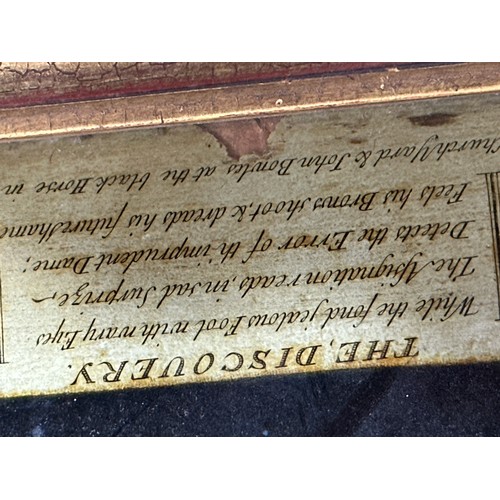 THE, DISCOVERY.
While the fond jealous Fool with wary Eyes
The Assignation reads, in sad Surprize,
Detects the Error of th' imprudent Dame;
Feels his Brows shoot, & dreads his future shame
Church Yard & John Bowles at the black Horse in